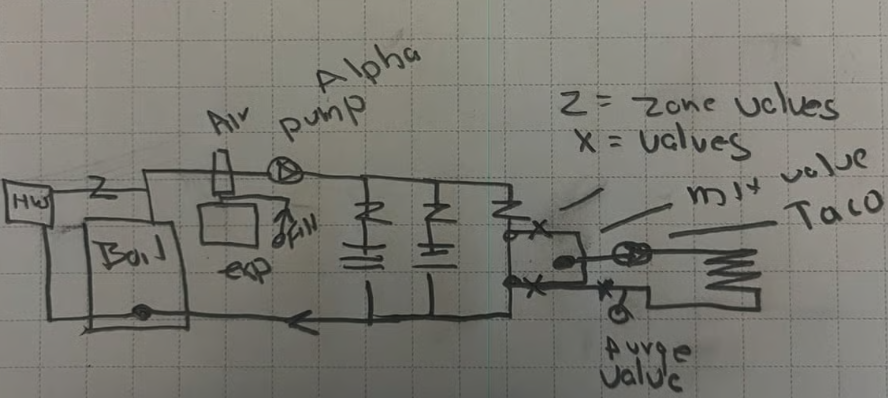 Alpha
pump
Air
Z = Zone valves
X = valves
mix valve
Taco
HW
Boil
fill
exp
purge
valve